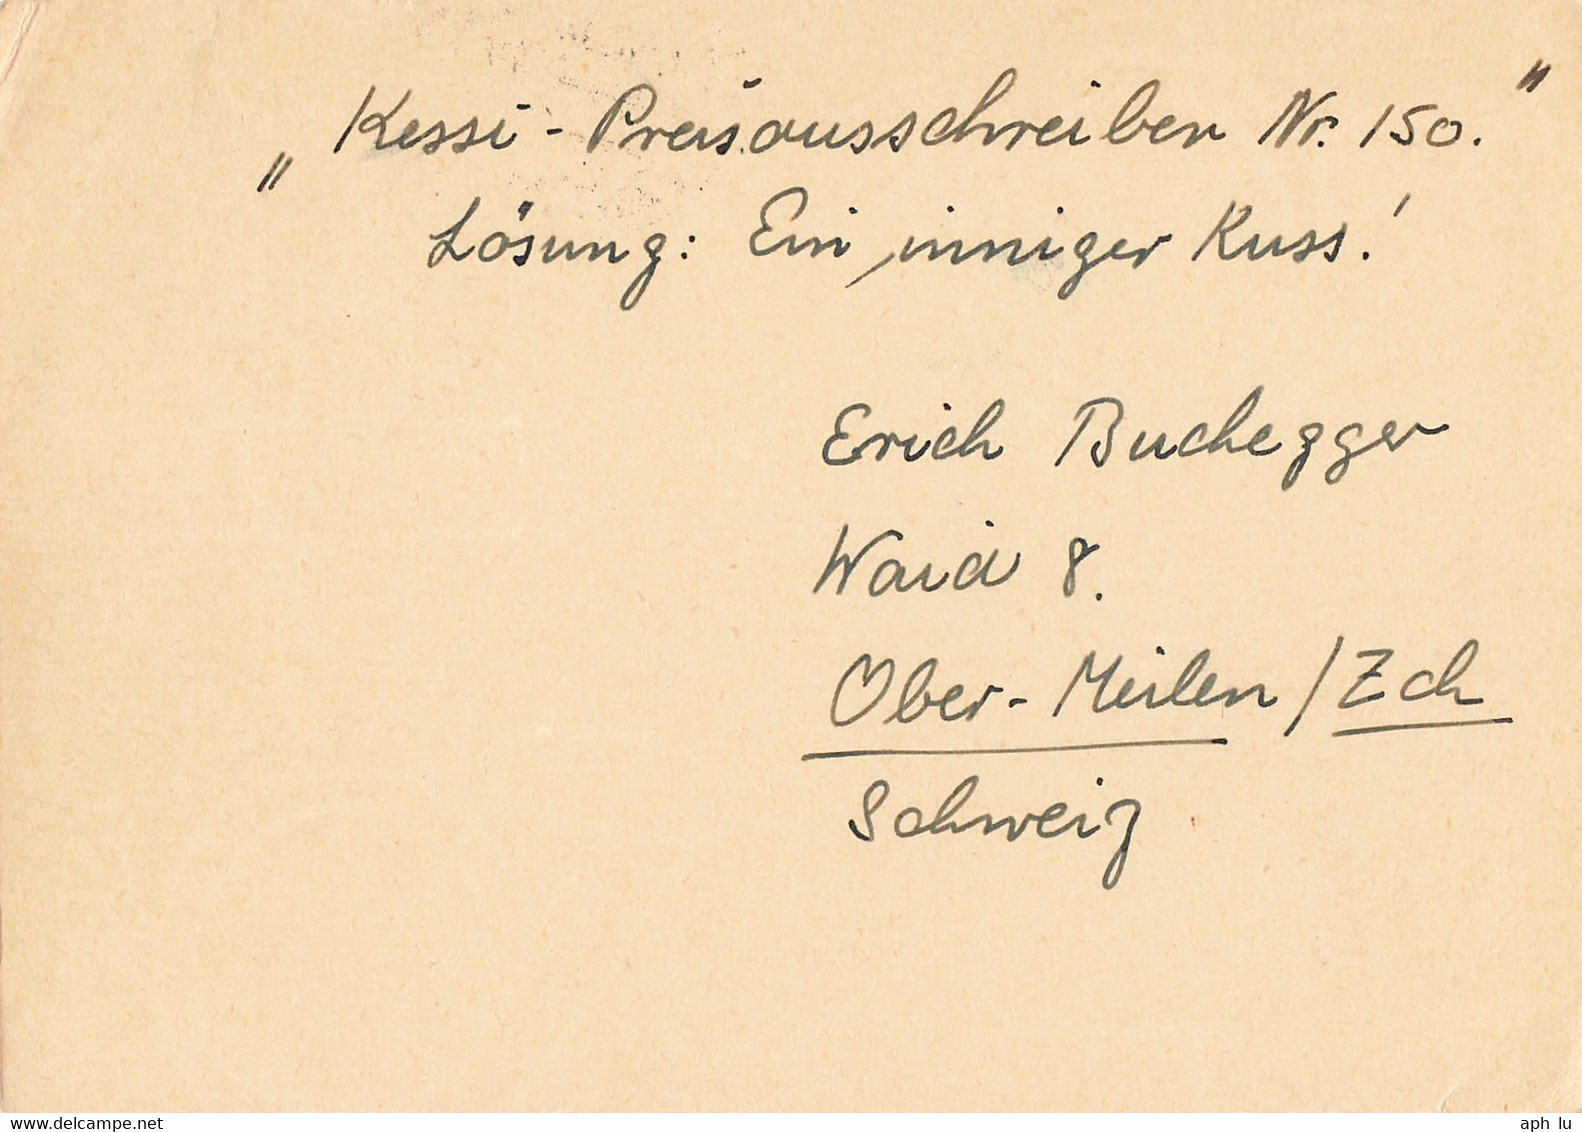 „Kessi-Preisausschreiben Nr. 150."
Lösung: Ein inniger Kuss!
Erich Buchegger
Waid 8.
Ober-Meilen/Zch
Schweiz
www.delcampe.net
aph lu